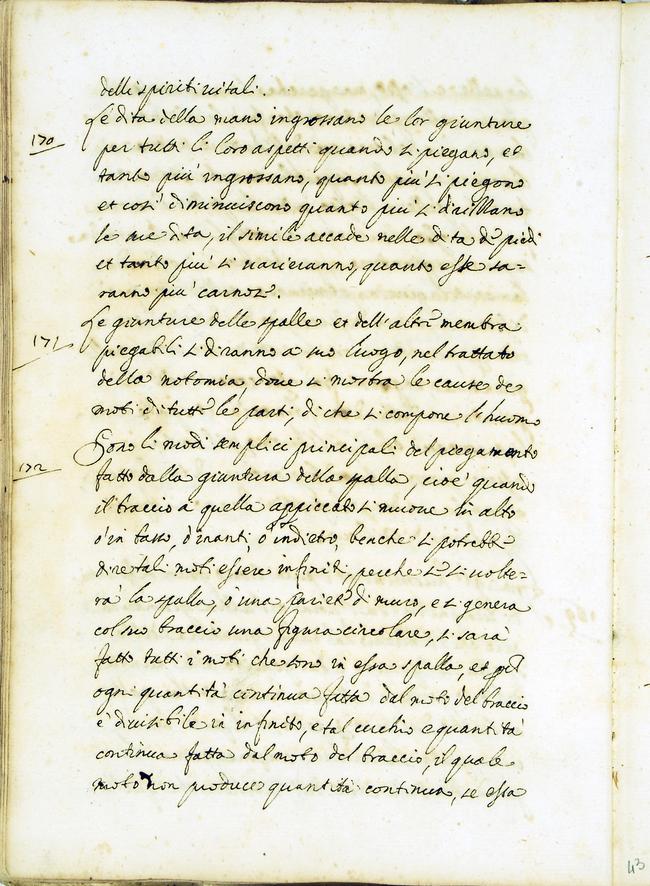 delli spiriti vitali.
170
Le dita della mano ingrossano le lor giunture
per tutti li loro aspetti quando si piegano, et
tanto più ingrossano, quanto più si piegono
et così diminuiscono quanto più si dirillano
le sue dita, il simile accade nelle dita de piedi
et tanto più si varieranno, quanto esse sa-
ranno più carnose.
171
Le giunture delle spalle et dell'altre membra
piegabili si diranno a suo luogo, nel trattato
della notomia, dove si mostra le cause de
moti di tutte le parti, di che si compone l'huomo
172
Sono li modi semplici principali del piegamento
fatto dalla giuntura della spalla, cioè quando
il braccio a quella appiccato si muove in alto
o in basso, o inanti, o indietro, benche si potrebbe
dire tali moti essere infiniti, perche se si volte-
rà la spalla, o una pariete di muro, e si genera
col suo braccio una figura circolare, si sarà
fatto tutti i moti che sono in essa spalla, et
ogni quantità continua fatta dal moto del braccio
è divisibile in infinito, e tal cerchio e quantità
continua fatta dal moto del braccio, il quale
moto non produce quantità continua, se essa
43